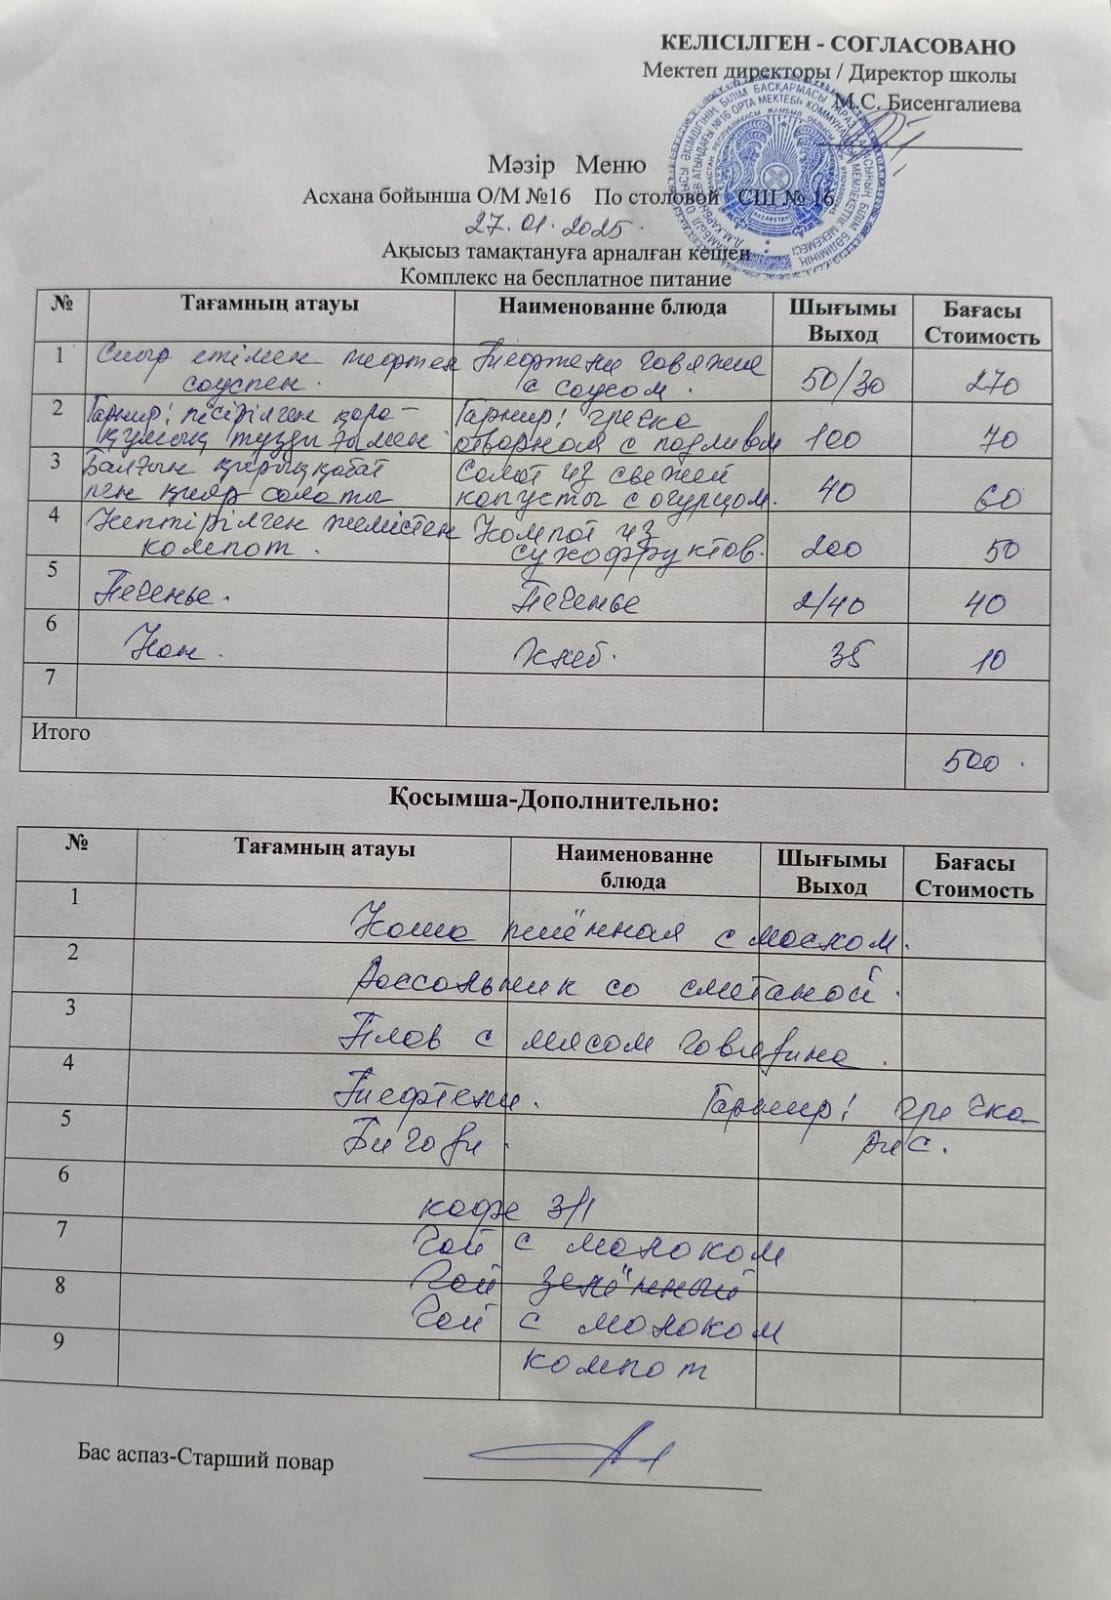 КЕЛІСІЛГЕН - СОГЛАСОВАНО
Мектеп директоры / Директор школы
М.С. Бисенгалиева
Мәзір Меню
Асхана бойынша О/М №16 По столовой СШ № 16
27.01.2025.
Ақысыз тамақтануға арналған кешен
Комплекс на бесплатное питание
№ Тағамның атауы Наименованне блюда Шығымы Выход Бағасы Стоимость
1 Сиыр етімен тефтели соуспен. Тефтели говяжие с соусом. 50/30 270
2 Гарнир: пісірілген қара-құмық тұздығымен Гарнир: гречка отварная с подливом 100 70
3 Балғын қырыққабат пен қияр салаты Салат из свежей капусты с огурцом. 40 60
4 Кептірілген жемістен компот. Компот из сухофруктов. 200 50
5 Печенье. Печенье 2/40 40
6 Нан. Хлеб. 35 10
7
Итого 500.
Қосымша-Дополнительно:
№ Тағамның атауы Наименованне блюда Шығымы Выход Бағасы Стоимость
1 Каша пшённая с маслом.
2 Рассольник со сметаной.
3 Плов с мясом говядина.
4 Тефтели. Гарнир: гречка
5 Бигоди. рис.
6 кофе 3/1
7 Чай с молоком
8 Чай зелённый
Чай с молоком
9 компот
Бас аспаз-Старший повар